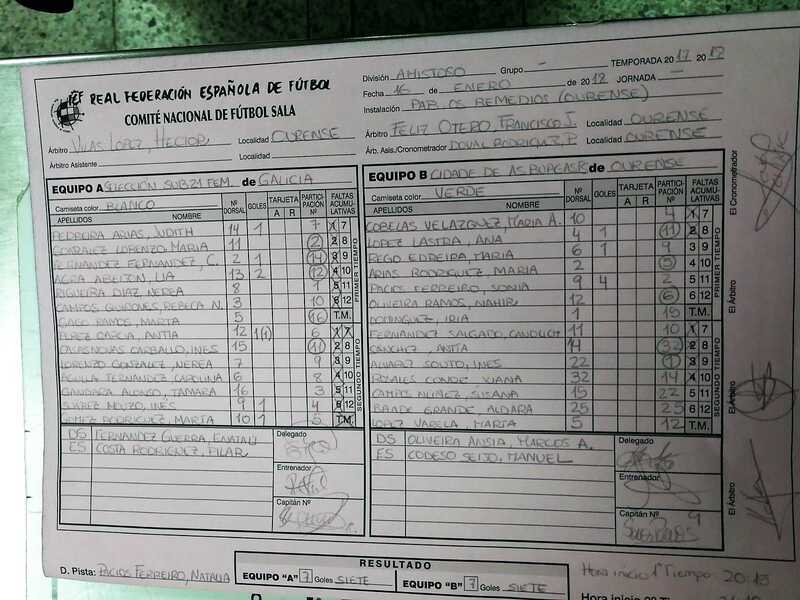 RFEF REAL FEDERACIÓN ESPAÑOLA DE FÚTBOL
COMITÉ NACIONAL DE FÚTBOL SALA
División AMISTOSO Grupo - TEMPORADA 2011 2012
Fecha 16 de ENERO de 2012 JORNADA -
Instalación PAB. OS REMEDIOS (OURENSE)
Árbitro VILAS LOPEZ, HECTOR Localidad OURENSE
Árbitro FELIZ OTERO, FRANCISCO J. Localidad OURENSE
Árbitro Asistente Localidad
Árb. Asis./Cronometrador DOVAL RODRIGUEZ, P. Localidad OURENSE
EQUIPO A SELECCIÓN SUB21 FEM. de GALICIA
Camiseta color BLANCO
APELLIDOS NOMBRE Nº DORSAL GOLES TARJETA A R PARTICIPACIÓN Nº FALTAS ACUMULATIVAS
PEDREIRA ARIAS, JUDITH 14 1 7 1 7
GONZALEZ LORENZO, MARIA 11 2 2 8
FERNANDEZ FERNANDEZ, C. 2 1 14 3 9
AGRA ABELEDO, LIA 13 2 12 4 10
RIGUEIRA DIAZ, NEREA 8 1 5 11
CAMPOS QUIÑONES, REBECA N. 3 10 6 12
GAGO RAMOS, MARTA 5 16 T.M.
PEREZ GARCIA, ANTIA 12 1(1) 6 1 7
CASASNOVAS CARBALLO, INES 15 11 2 8
LORENZO GONZALEZ, NEREA 7 9 3 9
AGUILA FERNANDEZ, CAROLINA 6 8 4 10
GANDARA ALONSO, TAMARA 16 3 5 11
SUAREZ MOUZO, INES 9 1 4 6 12
GOMEZ RODRIGUEZ, MARTA 10 1 5 T.M.
PRIMER TIEMPO
SEGUNDO TIEMPO
DS FERNANDEZ GUERRA,
ES COSTA RODRIGUEZ, PILAR
Delegado
Entrenador
Capitán Nº
EQUIPO B CIDADE DE AS BURGAS de OURENSE
Camiseta color VERDE
APELLIDOS NOMBRE Nº DORSAL GOLES TARJETA A R PARTICIPACIÓN Nº FALTAS ACUMULATIVAS
COBELAS VELAZQUEZ, MARIA A. 10 4 1 7
LOPEZ LASTRA, ANA 4 1 11 2 8
REGO EDREIRA, MARIA 6 1 9 3 9
ARIAS RODRIGUEZ, MARIA 2 5 4 10
PACIOS FERREIRO, SONIA 9 4 2 5 11
OLIVEIRA RAMOS, NAHIR 12 6 6 12
DOMINGUEZ, IRIA 1 15 T.M.
FERNANDEZ SALGADO, 11 10 1 7
SANCHEZ, ANTIA 14 32 2 8
ALVAREZ SOUTO, INES 22 1 3 9
ROSALES CONDE, XIANA 32 14 4 10
CAMPO NUÑEZ, SUSANA 15 22 5 11
BANDE GRANDE, ALDARA 25 25 6 12
LOPEZ VARELA, MARTA 5 12 T.M.
PRIMER TIEMPO
SEGUNDO TIEMPO
DS OLIVEIRA ANSIA, MARCOS A.
ES CODESO SEIJO, MANUEL
Delegado
Entrenador
Capitán Nº 9
El Cronometrador
El Árbitro
El Árbitro
El Árbitro
D. Pista: PACIOS FERREIRO, NATALIA
RESULTADO
EQUIPO "A" 7 Goles SIETE
EQUIPO "B" 7 Goles SIETE
Hora inicio 1º Tiempo 20:13